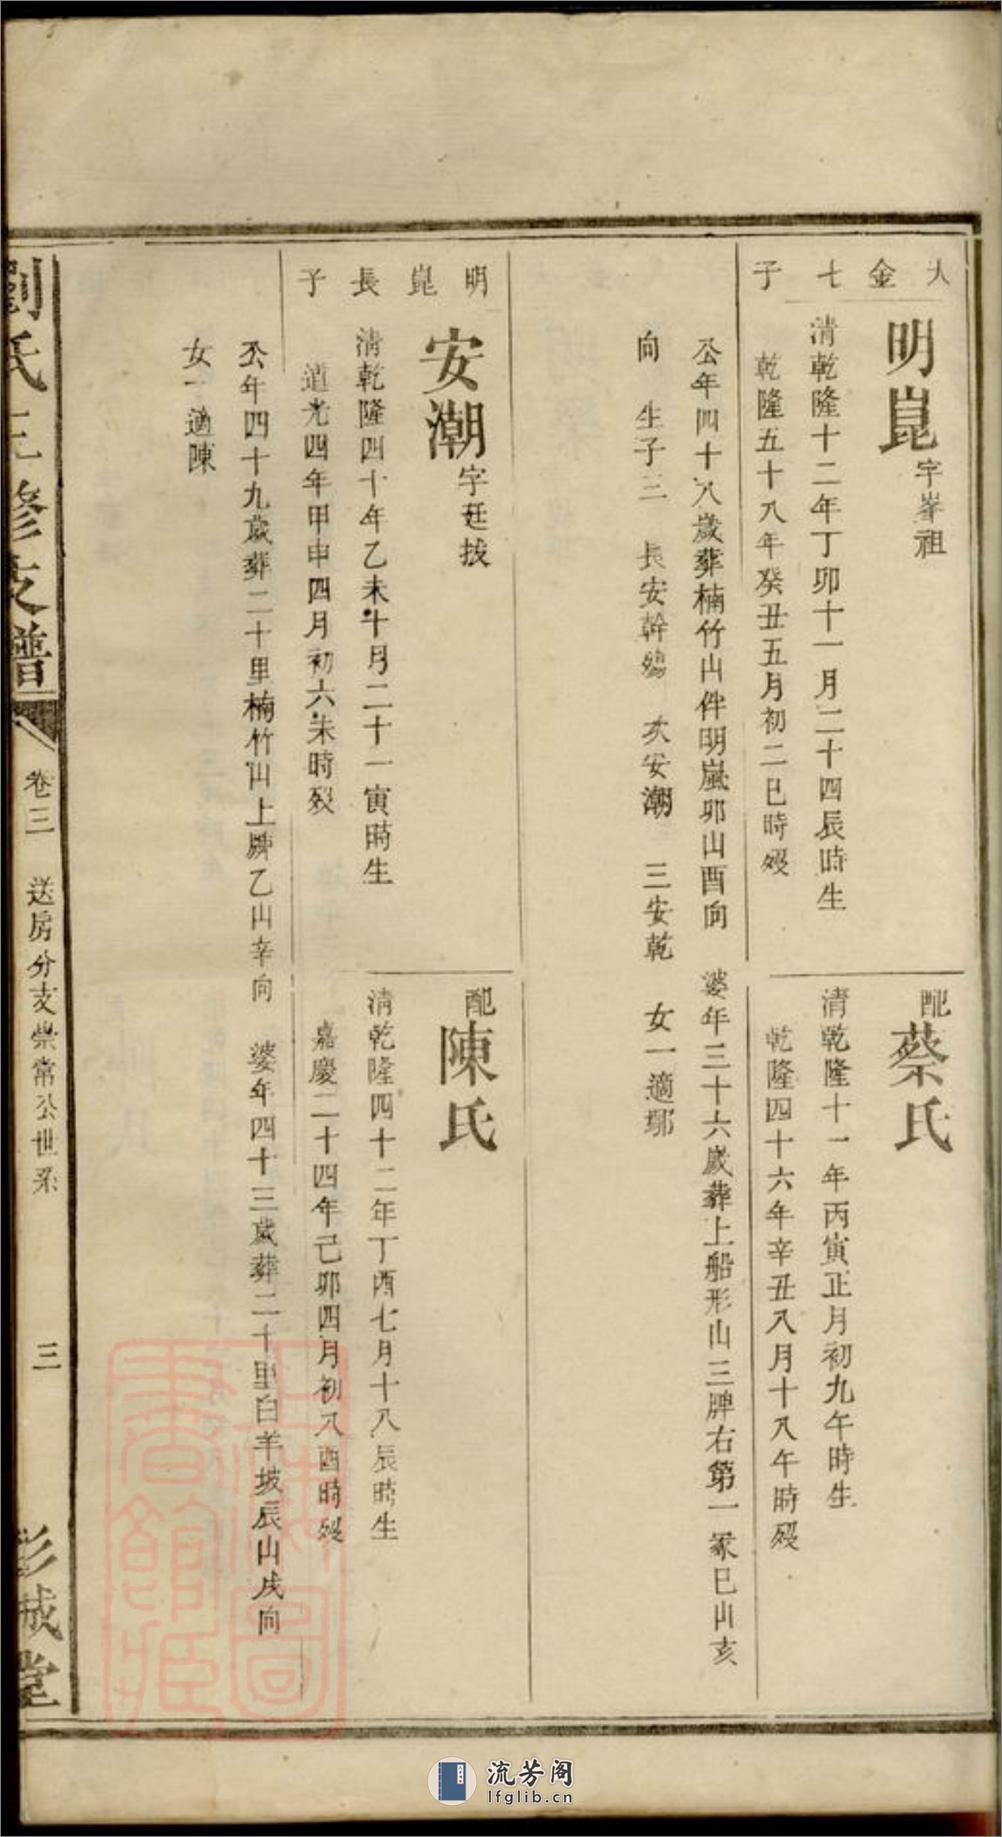 大金七子
明崑 字峯祖
清乾隆十二年丁卯十一月二十四辰時生
乾隆五十八年癸丑五月初二巳時歿
配蔡氏
清乾隆十一年丙寅正月初九午時生
乾隆四十六年辛丑八月十八午時歿
公年四十八歲葬楠竹山伴明嵐卯山酉向 婆年三十六歲葬上船形山三牌右第一冢巳山亥
向 生子三 長安幹殤 次安潮 三安乾 女一適鄢
明崑長子
安潮 字廷拔
清乾隆四十年乙未十月二十一寅時生
道光四年甲申四月初六未時歿
配陳氏
清乾隆四十二年丁酉七月十八辰時生
嘉慶二十四年己卯四月初八酉時歿
公年四十九歲葬二十里楠竹山上牌乙山辛向 婆年四十三歲葬二十里白羊坡辰山戌向
女一適陳
劉氏三修支譜 卷三 送房分支柴常公世系 三 彭城堂
上海圖書館藏
流芳阁
lfglib.cn